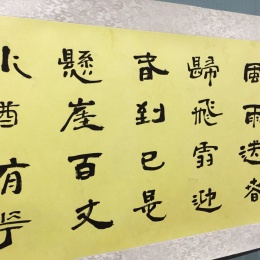 風雨送春
歸飛雪迎
春到已是
懸崖百丈
冰猶有華